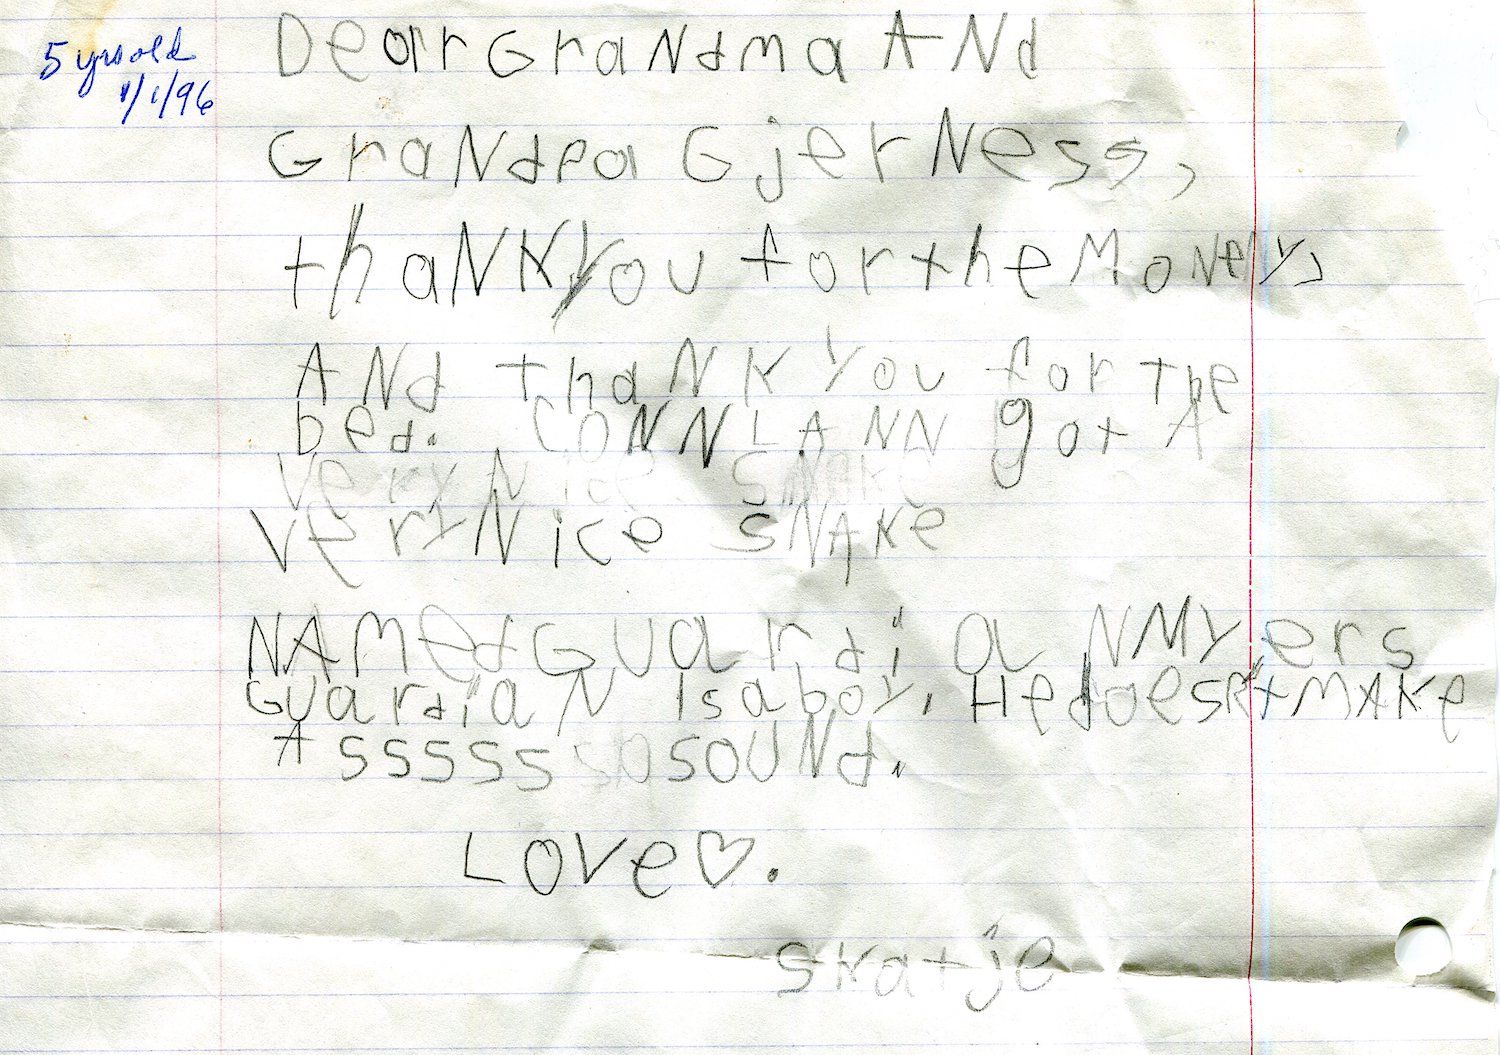 5 yrs old
1/1/96
Dear Grandma ANd
GraNdpa GjerNess,
thaNK You for the MoNey,
ANd thaNK You for the
bed. CONNLANN got A
very Nice SNAKE
very Nice SNAKe
NAMed GuardiaN Myers
GuardiaN Is a boy. He doesNt MAKe
A sssss SOUNd.
Love♡.
Skatje